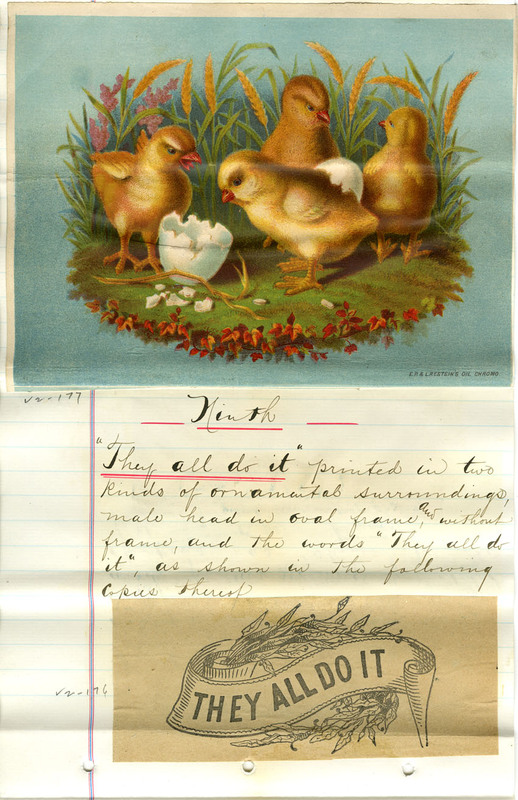 E.P. & L. RESTEIN'S OIL CHROMO
V2-177
Ninth
"They all do it" printed in two
kinds of ornamental surroundings,
male head in oval frame, and without
frame, and the words "They all do
it", as shown in the following
copies thereof
THEY ALL DO IT
V2-176